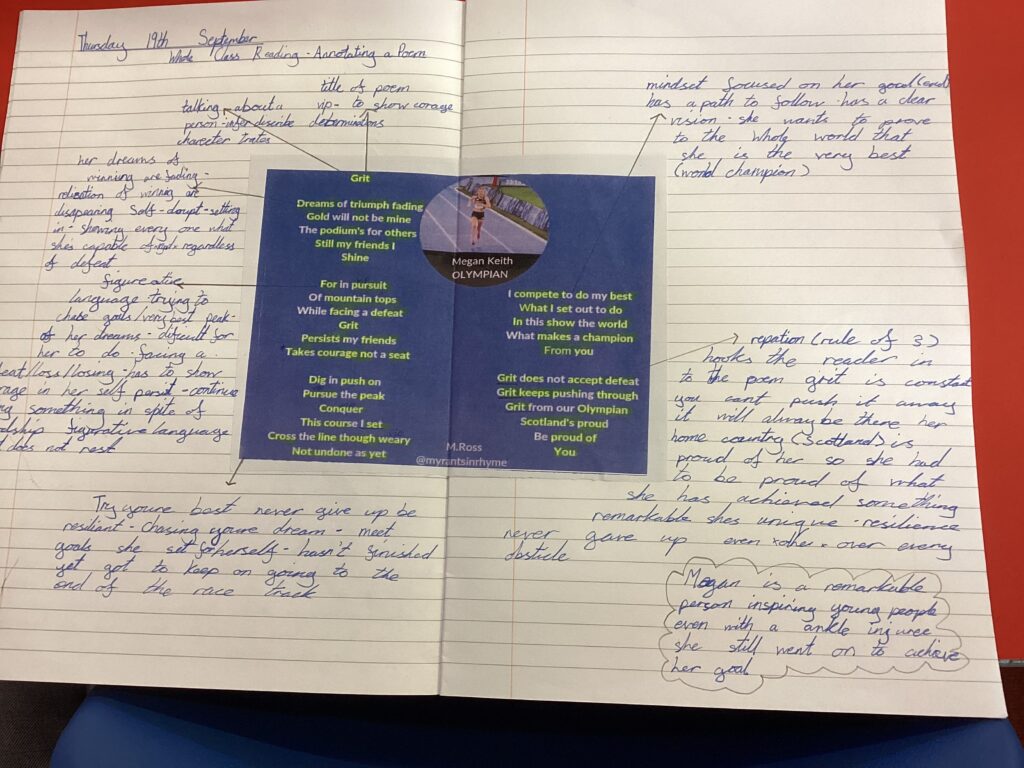 Thursday 19th September
Whole Class Reading - Annotating a Poem
title of poem
vip - to show corage
determinations
talking about a
person - infer describe
charecter traites
her dreams of
winning are fading -
of winning are
disapearing Self-doupt - setting
in - shewing every one what
she's capable of regardless
of defeat
figurative
language trying to
chase goals/very best peak -
of her dreams - difficult for
her to do - facing a
/loss/losing - has to show
in her self persit - continue
something in spite of
figurative language
does not rest
Try youre best never give up be
resiliant - chasing youre dream - meet
goals she set for herself - hasn't finished
yet got to keep on going to the
end of the race track
Grit
Dreams of triumph fading
Gold will not be mine
The podium's for others
Still my friends I
Shine
For in pursuit
Of mountain tops
While facing a defeat
Grit
Persists my friends
Takes courage not a seat
Dig in push on
Pursue the peak
Conquer
This course I set
Cross the line though weary
Not undone as yet
Megan Keith
OLYMPIAN
I compete to do my best
What I set out to do
In this show the world
What makes a champion
From you
Grit does not accept defeat
Grit keeps pushing through
Grit from our Olympian
Scotland's proud
Be proud of
You
M.Ross
@myrantsinrhyme
mindset focused on her goal (end)
has a path to follow has a clear
vision - she wants to prove
to the whole world that
she is the very best
(world champion)
repation (rule of 3)
hooks the reader in
to the poem grit is constat
you cant push it away
it will alway be there her
home country (Scotland) is
proud of her so she had
to be proud of what
she has achieved something
remarkable shes unique - resilience
never gave up even over every
obsticle
Megan is a remarkable
person inspiring young people
even with a ankle injuree
she still went on to achieve
her goal